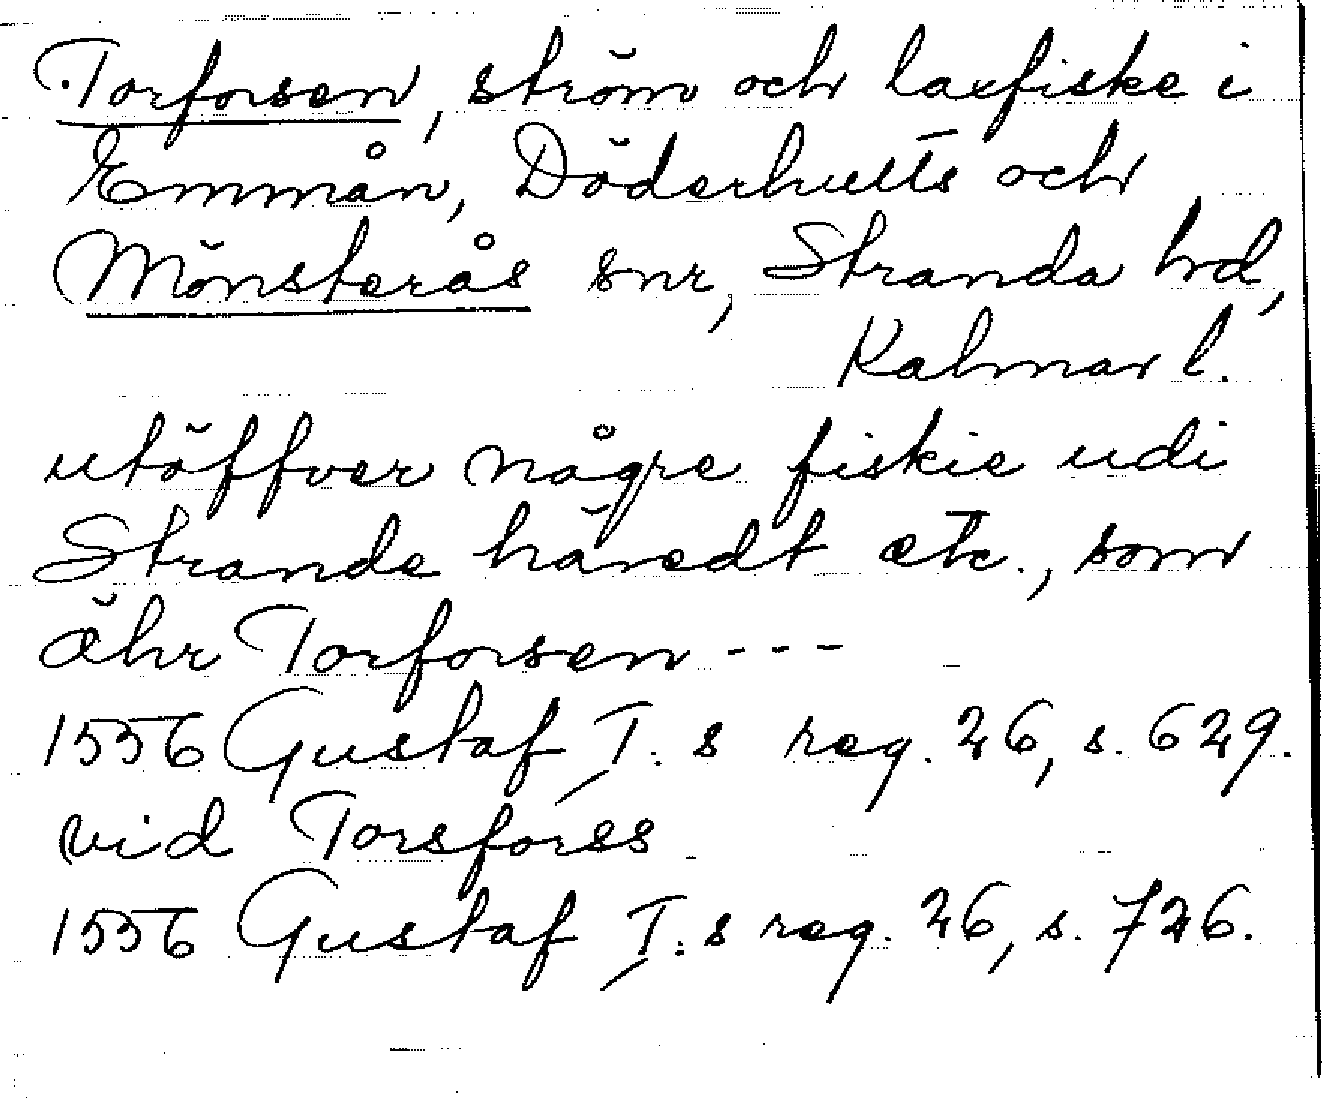 Torforsen, ström och laxfiske i
Emmån, Döderhults och
Mönsterås snr, Stranda hd,
Kalmar l.
utöffver någre fiskie udi
Strande häredt etc., som
ähr Torforsen ---
1556 Gustaf I:s reg. 26, s. 629.
vid Torsforss
1556 Gustaf I:s reg. 26, s. 726.